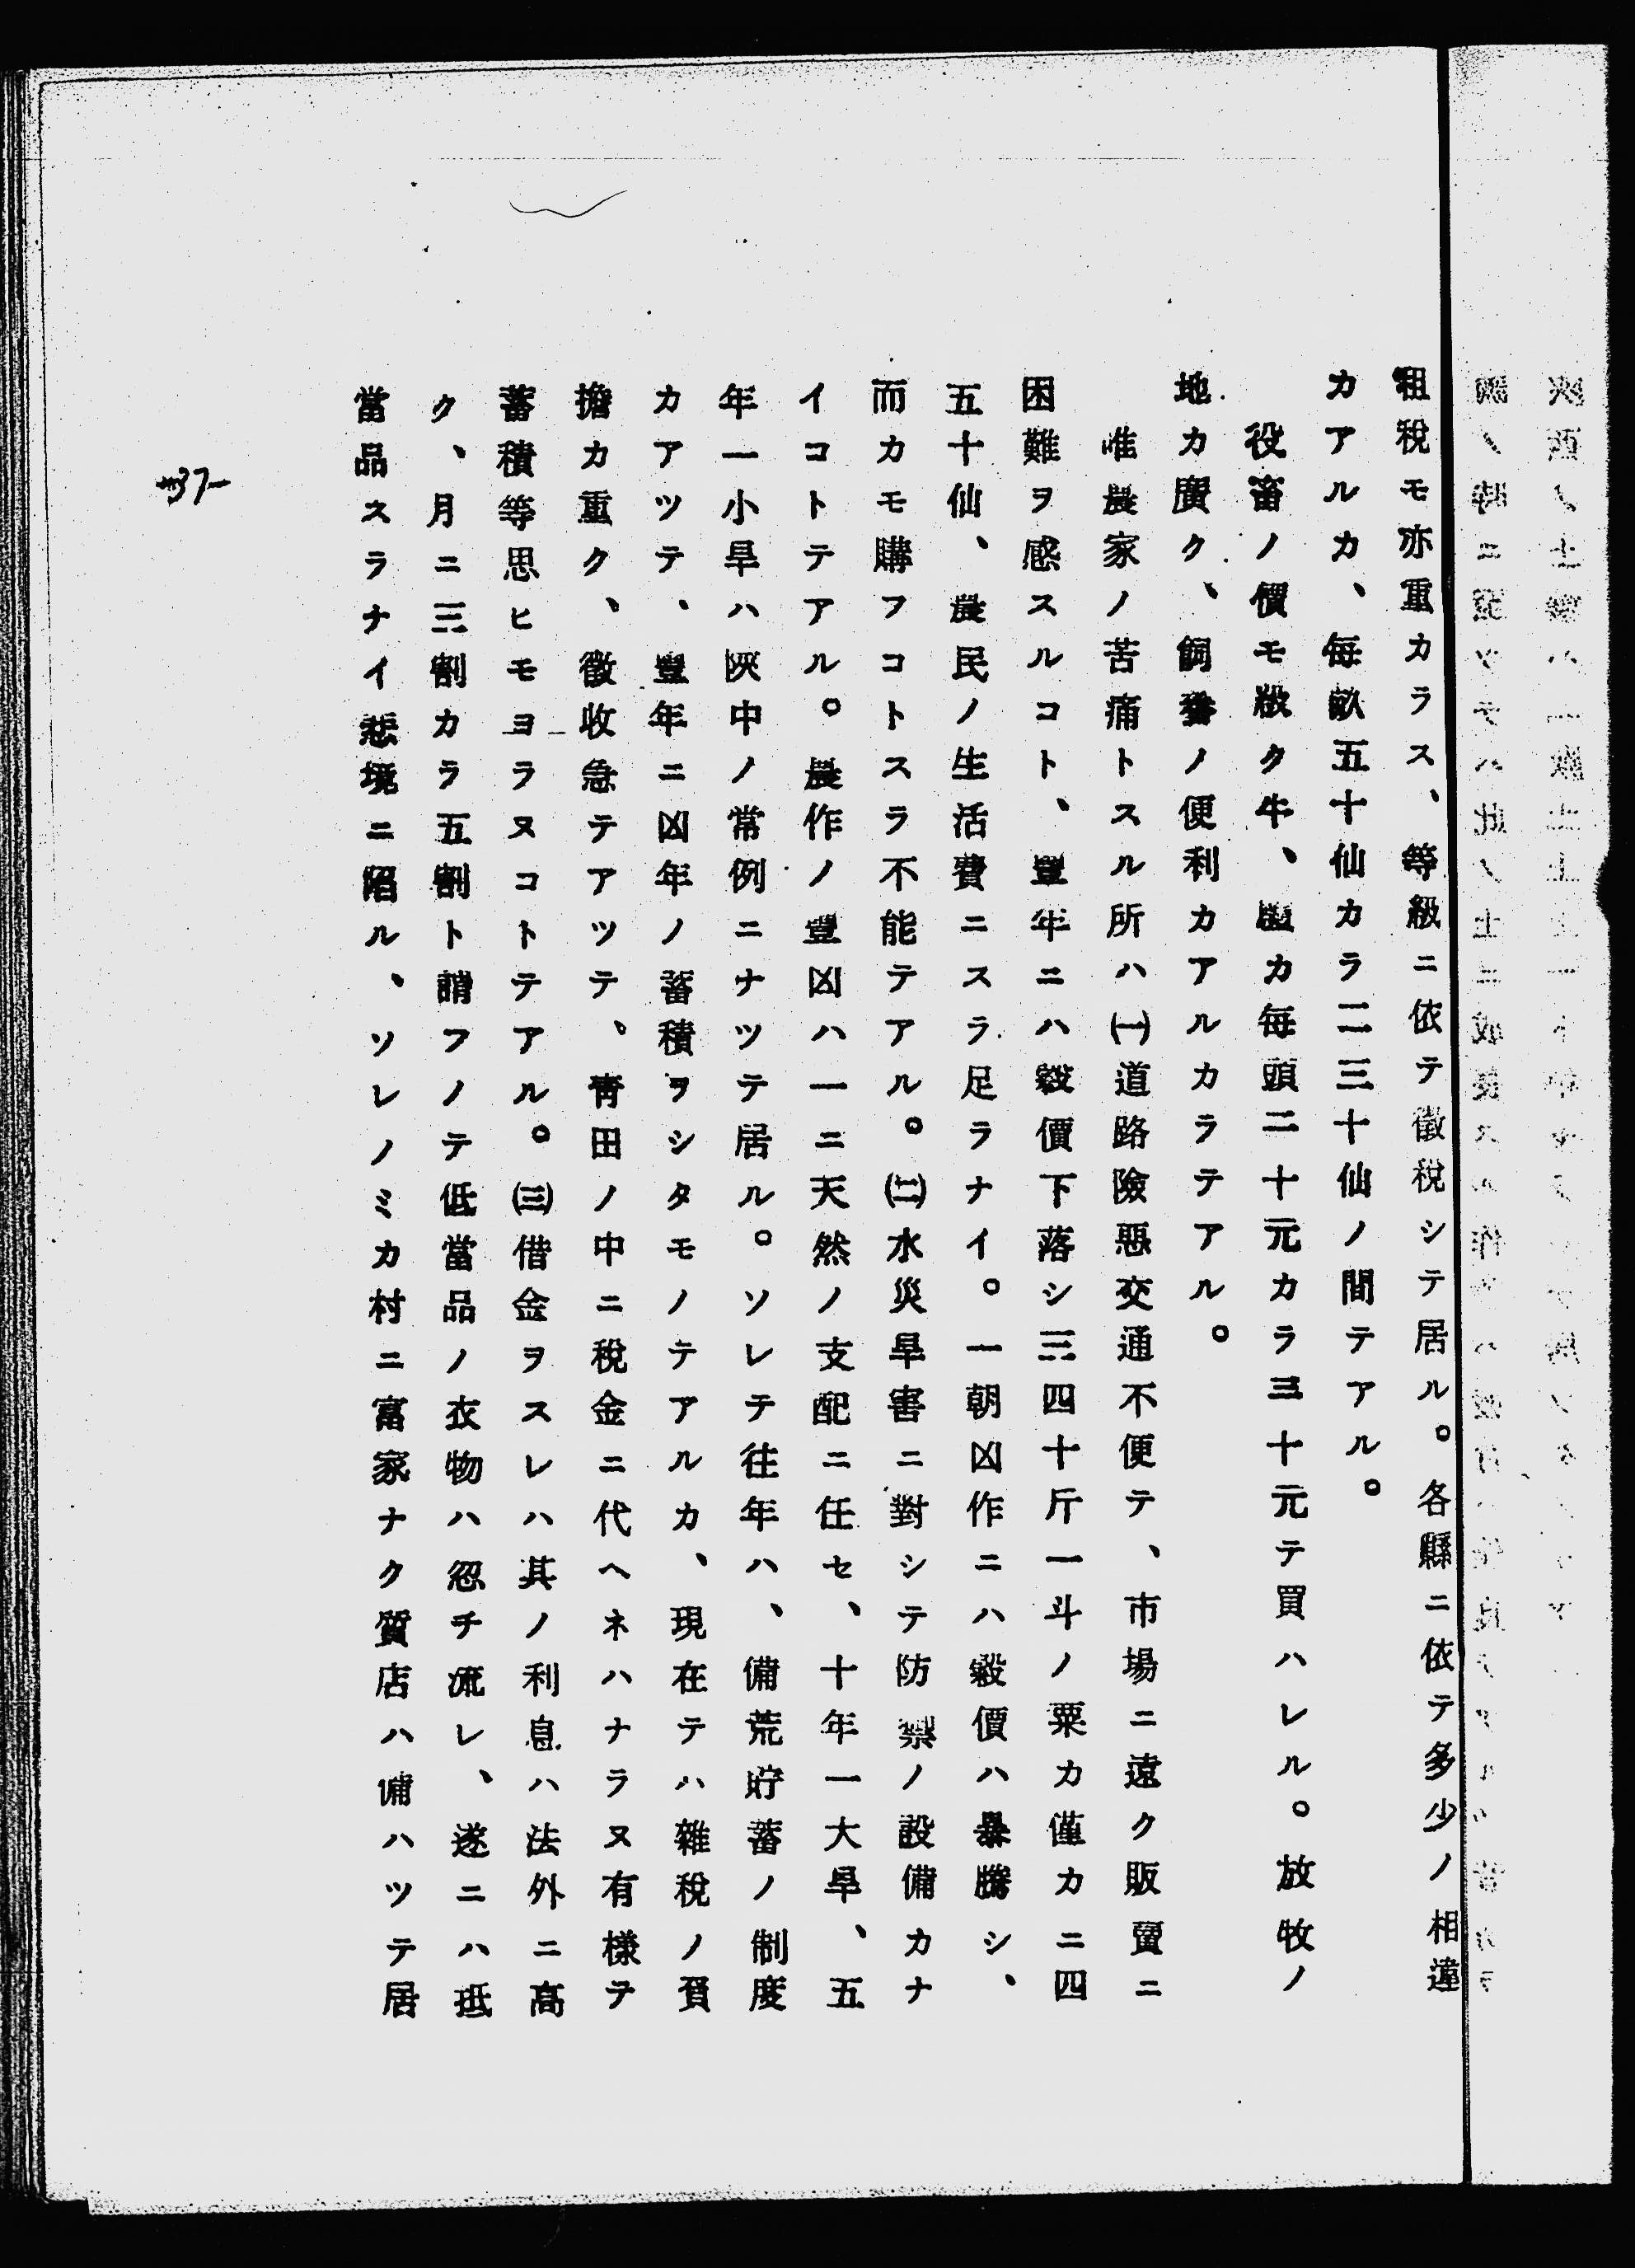 租稅モ亦重カラス、等級ニ依テ徵稅シテ居ル。各縣ニ依テ多少ノ相違
カアルカ、每畝五十仙カラ二三十仙ノ間テアル。
役畜ノ價モ殺ク牛、騾カ每頭二十元カラ三十元テ買ハレル。放牧ノ
地カ廣ク、飼養ノ便利カアルカラテアル。
唯農家ノ苦痛トスル所ハ㈠道路險惡交通不便テ、市場ニ遠ク販賣ニ
困難ヲ感スルコト、豐年ニハ穀價下落シ三四十斤一斗ノ粟カ僅カニ四
五十仙、農民ノ生活費ニスラ足ラナイ。一朝凶作ニハ穀價ハ暴騰シ、
而カモ購フコトスラ不能テアル。㈡水災旱害ニ對シテ防禦ノ設備カナ
イコトテアル。農作ノ豐凶ハ一ニ天然ノ支配ニ任セ、十年一大旱、五
年一小旱ハ陝中ノ常例ニナツテ居ル。ソレテ往年ハ、備荒貯蓄ノ制度
カアツテ、豐年ニ凶年ノ蓄積ヲシタモノテアルカ、現在テハ雜稅ノ負
擔カ重ク、徵收急テアツテ、靑田ノ中ニ稅金ニ代ヘネハナラヌ有樣テ
蓄積等思ヒモヨラヌコトテアル。㈢借金ヲスレハ其ノ利息ハ法外ニ高
ク、月ニ三割カラ五割ト謂フノテ低當品ノ衣物ハ忽チ流レ、遂ニハ抵
當品スラナイ悲境ニ陷ル、ソレノミカ村ニ富家ナク質店ハ備ハツテ居
-37-